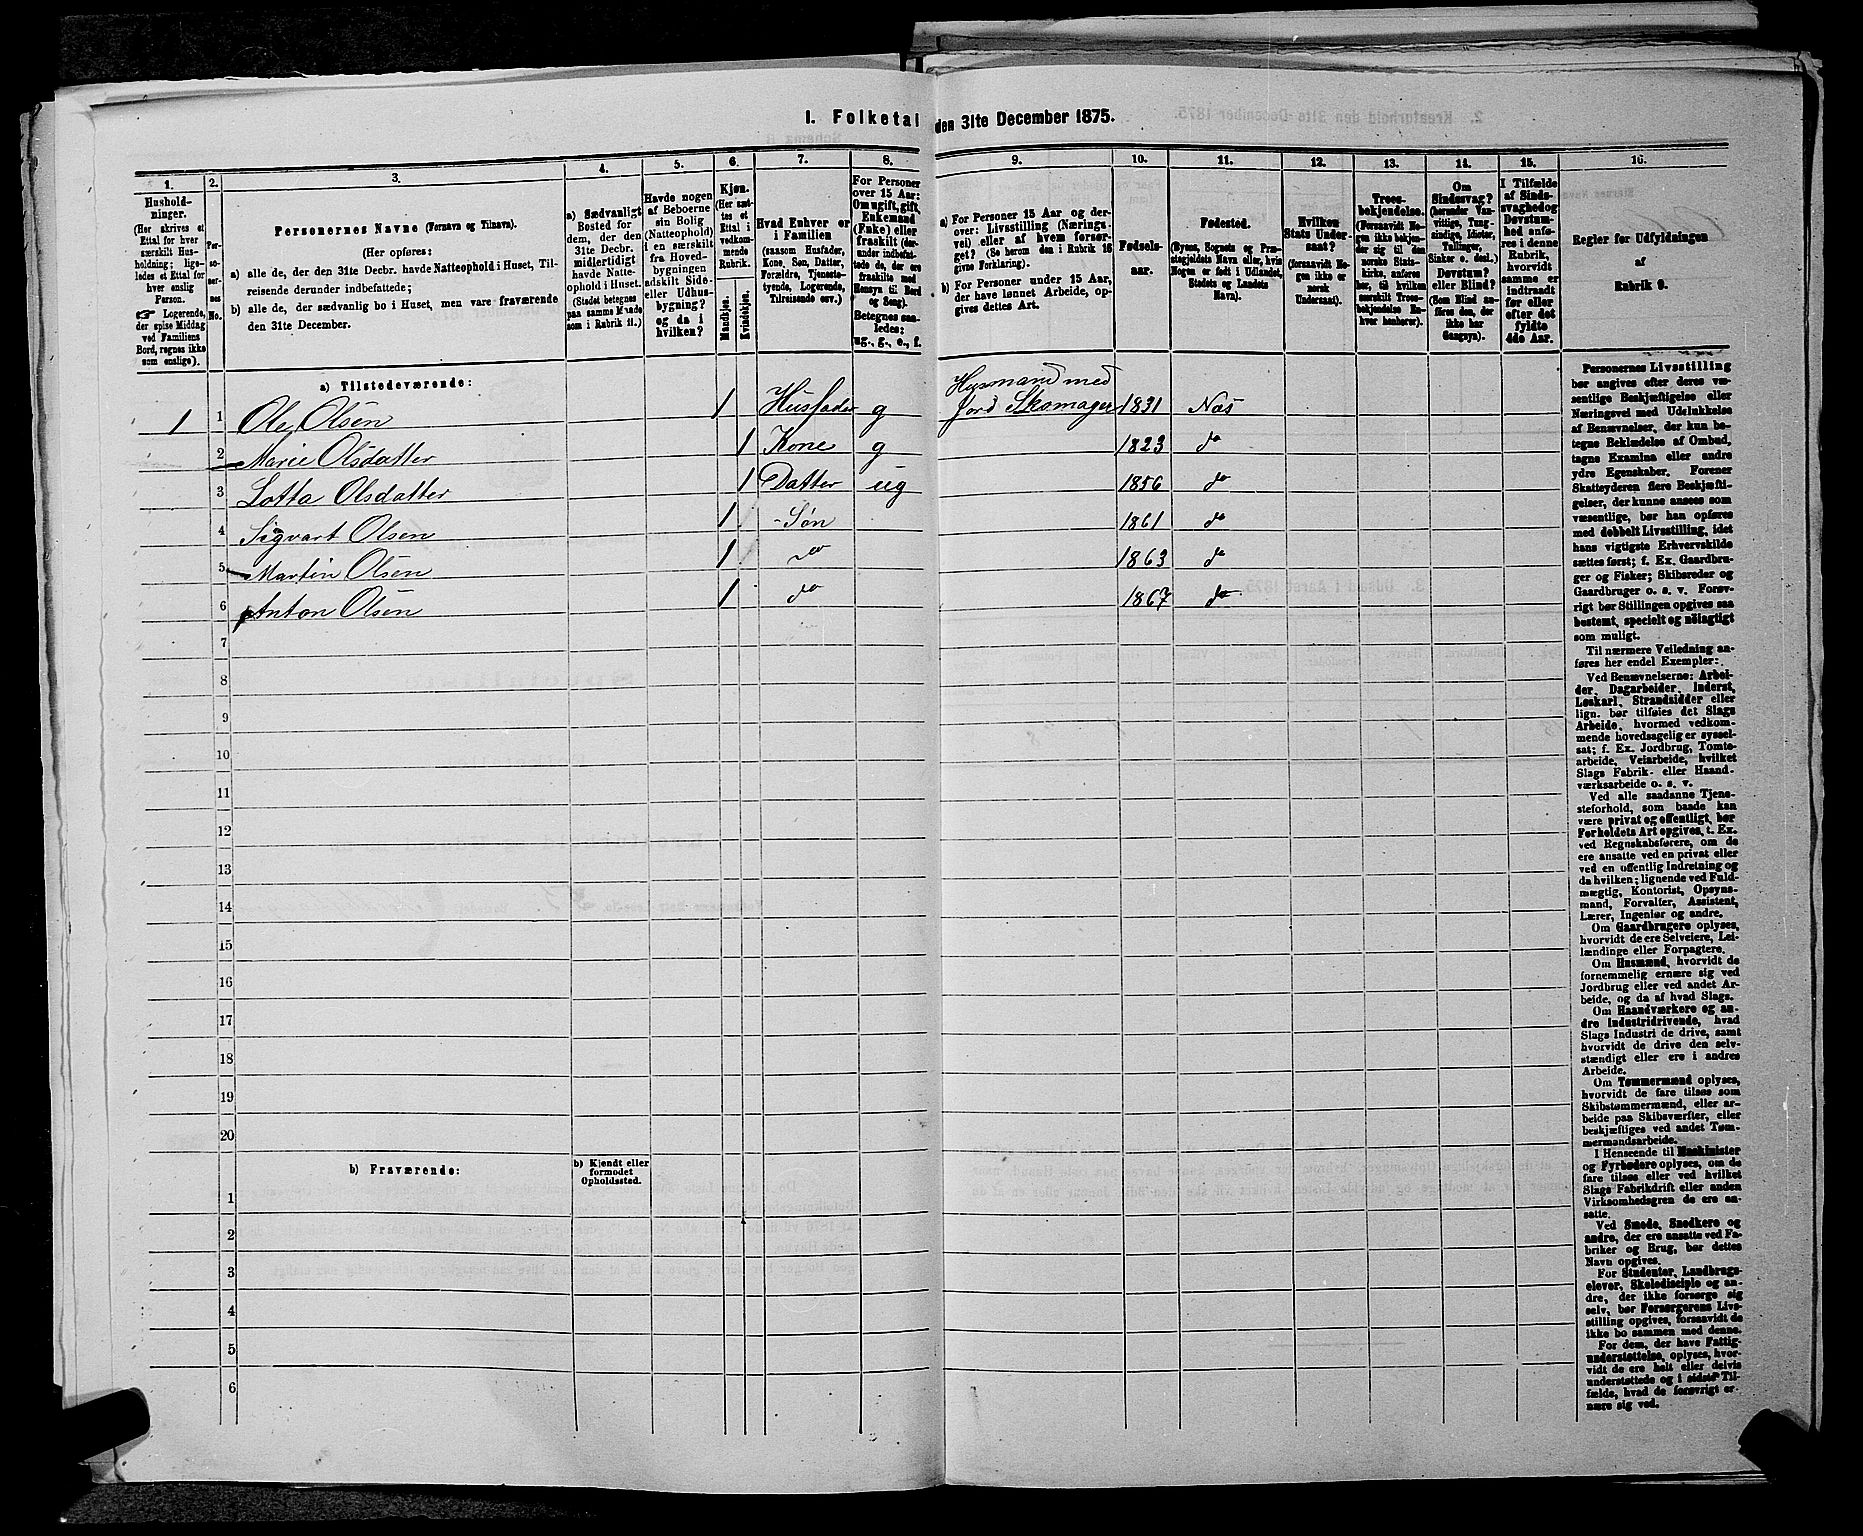 1. Folketal den 31te December 1875.
1. 2. 3. 4. 5. 6. 7. 8. 9. 10. 11. 12. 13. 14. 15. 16.
Hushold-
ninger.
(Her skrives et
Ettal for hver
særskilt Hus-
holdning; lige-
ledes et Ettal for
hver enslig
Person.
☞ Logerende,
der spise Middag
ved Familiens
Bord, regnes ikke
som enslige).
Per-
so-
ner-
nes
No.
Personernes Navne (Fornavn og Tilnavn).
(Her opføres:
a) alle de, der den 31te Decbr. havde Natteophold i Huset, Til-
reisende derunder indbefattede;
b) alle de, der sædvanlig bo i Huset, men vare fraværende
den 31te December.
a) Sædvanligt
Bosted for
dem, der den
31te Decbr.
midlertidigt
havde Natte-
ophold i Huset.
(Stedet betegnes
paa samme Maade
som i Rubrik 11.)
Havde nogen
af Beboerne
sin Bolig
(Natteophold)
i en særskilt
fra Hoved-
bygningen
adskilt Side-
eller Udhus-
bygning?
og da i
hvilken?
Kjøn.
(Her sæt-
tes et
Ettal i
vedkom-
mende
Rubrik.
Mandkjøn.
Kvindekjøn.
Hvad Enhver er
i Familien
(saasom Husfader,
Kone, Søn, Datter,
Forældre, Tjeneste-
tyende, Logerende,
Tilreisende osv.)
For Personer
over 15 Aar:
Om ugift, gift,
Enkemand
(Enke) eller
fraskilt (der-
under indbefat-
tede de, der ere
fraskilte med
Hensyn til Bord
og Seng).
Betegnes saa-
ledes:
ug., g., e., f.
a) For Personer 15 Aar og der-
over: Livsstilling (Nærings-
vei) eller af hvem forsør-
get? (Se herom den i Rubrik 16
givne Forklaring).
b) For Personer under 15 Aar,
der have lønnet Arbeide, op-
gives dettes Art.
Fødsels-
aar.
Fødested.
(Byens, Sognets og Præ-
stegjeldets Navn eller, hvis
Nogen er født i Udlandet,
Stedets og Landets
Navn).
Hvilken
Stats Under-
saat?
(forsaavidt No-
gen ikke er
norsk
Undersaat).
Troes-
bekjendelse.
(Forsaavidt No-
gen ikke bekjen-
der sig til den
norske Stats-
kirke, anføres
her, til hvilken
særskilt Troes-
bekjendelse En-
hver henhører).
Om
Sindssvag?
(herunder Van-
vittige, Tung-
sindige, Idioter,
Tullinger,
Sinker o. desl.)
Døvstum?
eller Blind?
(Som Blind an-
føres den, der
ikke har
Gangsyn).
I Tilfælde
af Sinds-
svaghed og
Døvstum-
hed anfø-
res i denne
Rubrik,
hvorvidt
samme er
indtraadt
før eller
efter det
fyldte
4de Aar.
Regler for Udfyldningen
af
Rubrik 9.
a) Tilstedeværende:
Husmand med
1 1 Ole Olsen 1 Husfader g Jord Skomager 1831 Næs
2 Marie Olsdatter 1 Kone g 1823 do
3 Lotta Olsdatter 1 Datter ug 1856 do
4 Sigvart Olsen 1 Søn 1861 do
5 Martin Olsen 1 do 1863 do
6 Anton Olsen 1 do 1867 do
7
8
9
10
11
12
13
14
15
16
17
18
19
20
b) Fraværende:
b) Kjendt eller
formodet
Opholdssted.
1
2
3
4
5
6
Personernes Livsstilling
bør angives efter deres væ-
sentlige Beskjæftigelse eller
Næringsvei med Udelukkelse
af Benævnelser, der kun be-
tegne Beklædelse af Ombud,
tagne Examina eller andre
ydre Egenskaber. Forener
Skatteyderen flere Beskjæfti-
gelser, der kunne ansees som
væsentlige, bør han opføres
med dobbelt Livsstilling, idet
hans vigtigste Erhvervskilde
sættes først; f. Ex. Gaardbru-
ger og Fisker; Skibsreder og
Gaardbruger o. s. v. Forøv-
rigt bør Stillingen opgives saa
bestemt, specielt og nøiagtigt
som muligt.
Til nærmere Veiledning an-
føres her endel Exempler:
Ved Benævnelserne: Arbei-
der, Dagarbeider, Inderst,
Løskarl, Strandsidder eller
lign. bør tilføies det Slags
Arbeide, hvormed vedkom-
mende hovedsagelig er syssel-
sat; f. Ex. Jordbrug, Tomte-
arbeide, Veiarbeide, hvilket
Slags Fabrik- eller Haand-
værksarbeide o. s. v.
Ved alle saadanne Tjene-
steforhold, som baade kan
være privat og offentligt, bør
Forholdets Art opgives, t. Ex.
ved Regnskabsførere, om de
ere ansatte ved en privat eller
ved en offentlig Indretning og
da hvilken; lignende ved Fuld-
mægtig, Kontorist, Opsyns-
mand, Forvalter, Assistent,
Lærer, Ingeniør og andre.
Om Gaardbrugere oplyses,
hvorvidt de ere Selveiere, Lei-
lændinge eller Forpagtere.
Om Husmænd, hvorvidt de
fornemmelig ernære sig ved
Jordbrug eller ved andet Ar-
beide, og da af hvad Slags.
Om Haandværkere og an-
dre Industridrivende, hvad
Slags Industri de drive, samt
hvorvidt de drive den selv-
stændigt eller ere i andres
Arbeide.
Om Tømmermænd oplyses,
hvorvidt de fare tilsøs som
Skibstømmermænd, eller ar-
beide paa Skibsværfter, eller
beskjæftiges ved andet Tøm-
mermandsarbeide.
I Henseende til Maskinister
og Fyrbødere oplyses, om de
fare tilsøs eller ved hvilket
Slags Fabrikdrift eller anden
Virksomhedsgren de ere an-
satte.
Ved Smede, Snedkere og
andre, der ere ansatte ved Fa-
briker og Brug, bør dettes
Navn opgives.
For Studenter, Landbrugs-
elever, Skoledisciple og an-
dre, der ikke forsørge sig
selv, bør Forsørgerens Livs-
stilling opgives, forsaavidt de
ikke bo sammen med denne.
For dem, der have Fattig-
understøttelse, oplyses, hvor-
vidt de ere helt eller delvis
understøttede og i sidste Til-
fælde, hvad de forøvrigt er-
nære sig ved.